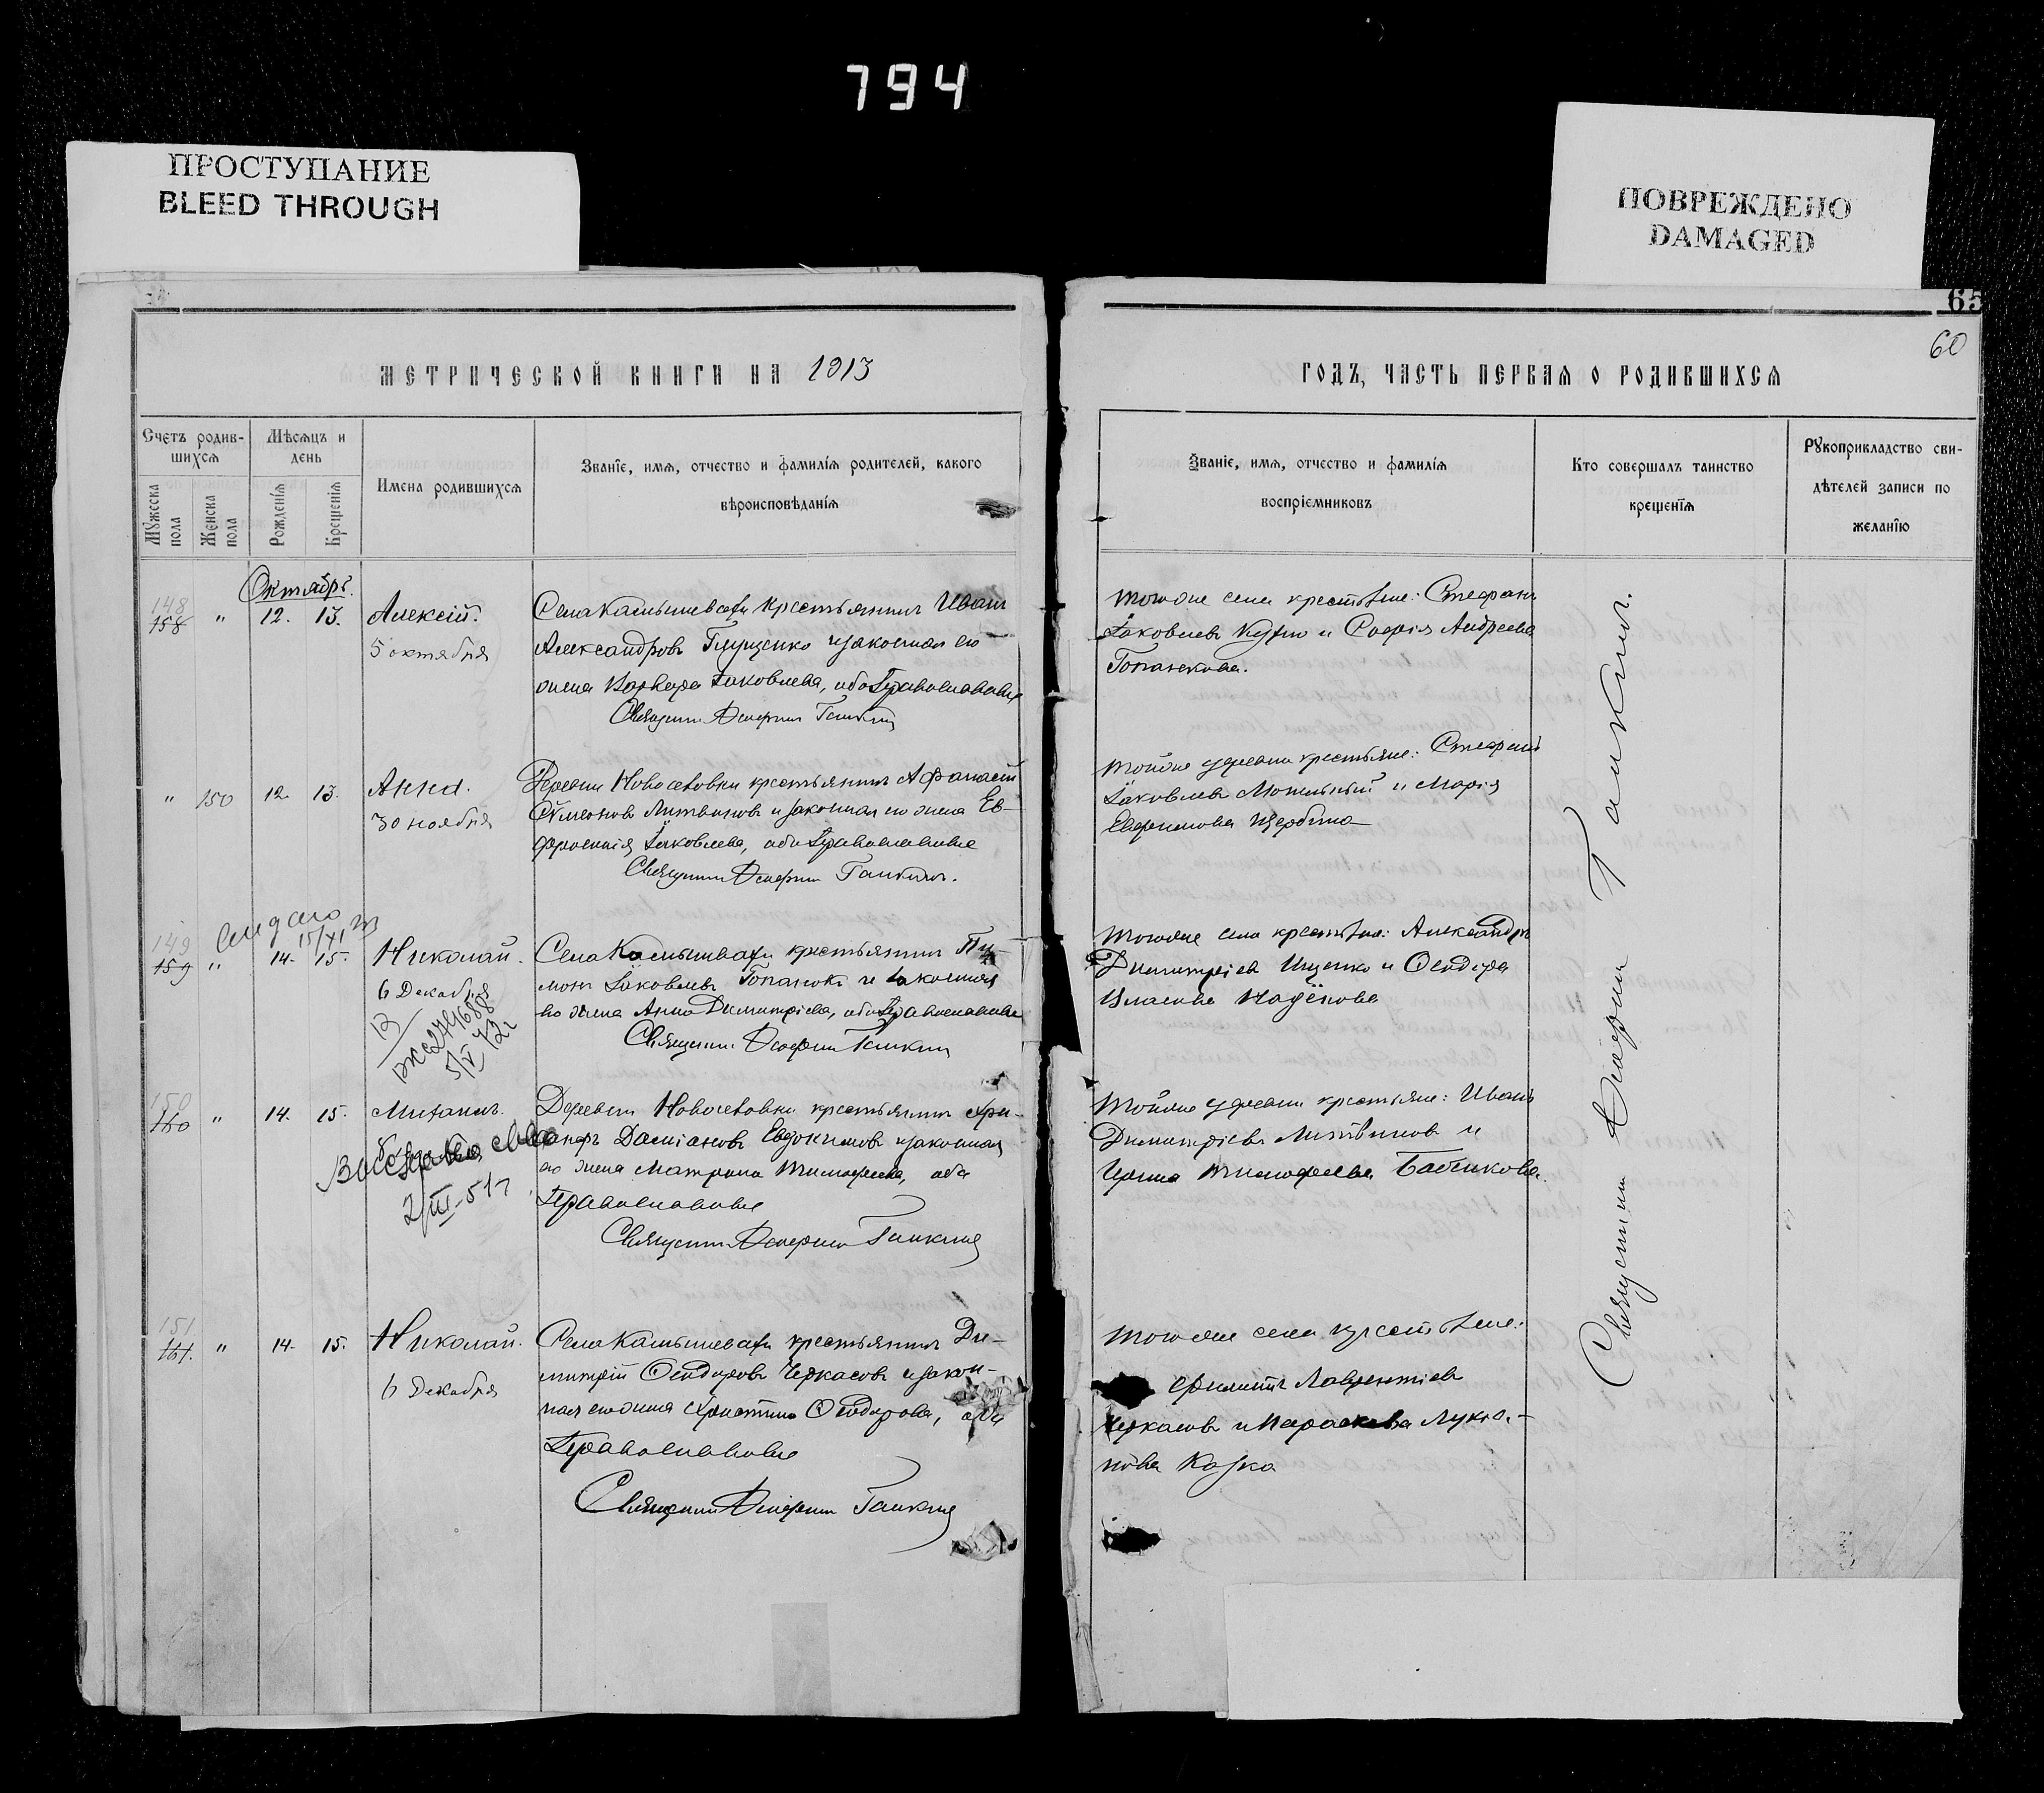 794
ПРОСТУПАНИЕ
BLEED THROUGH
ПОВРЕЖДЕНО
DAMAGED
65
60
МЕТРИЧЕСКОЙ КНИГИ НА 1913
ГОДЪ, ЧАСТЬ ПЕРВАЯ О РОДИВШИХСЯ
Счетъ родив-
шихся
Мужеска пола
Женска пола
Мѣсяцъ и
день
Рожденія
Крещенія
Имена родившихся
Званіе, имя, отчество и фамилія родителей, какого
вѣроисповѣданія
Званіе, имя, отчество и фамилія
воспріемниковъ
Кто совершалъ таинство
крещенія
Рукоприкладство сви-
дѣтелей записи по
желанію
Октябрь.
148
158 " 12. 13. Алексій.
5 октября
Села Камышевахи крестьянинъ Иванъ
Александровъ Глущенко и законная его
жена Варвара Іаковлева, оба Православные
Священникъ Димитрій Галкинъ
тогоже села крестьяне: Стефанъ
Іаковлевъ и Софія Андреева
" 150 12. 13. Анна.
30 ноября
Деревни Новосёловки крестьянинъ Афанасій
Сѵмеоновъ Литвиновъ и законная его жена Ев-
фросинія Іаковлева, оба Православные
Священникъ Димитрій Галкинъ.
тойже деревни крестьяне: Стефанъ
Іаковлевъ и Марія
Евфимова Щербина
149
159 " 14. 15. Николай.
15/XI
6 Декабря
5/V 72г
Села Камышевахи крестьянинъ
Іаковлевъ и законная
его жена Анна Димитріева, оба Православные
Священникъ Димитрій Галкинъ
тогоже села крестьяне: Александръ
Димитріевъ Ищенко и Ѳеодора
150
160 " 14. 15. Михаилъ.
2/III-51г
Деревни Новосёловки крестьянинъ Хри-
санфъ Даміановъ Евдокимовъ и законная
его жена Матрона Тимофеева, оба
Православные
Священникъ Димитрій Галкинъ
тойже деревни крестьяне: Иванъ
Димитріевъ Литвиновъ и
Ирина Тимофеева
151
161. " 14. 15. Николай.
6 Декабря
Села Камышевахи крестьянинъ Ди-
митрій Ѳеодоровъ Черкасовъ и закон-
ная его жена Христина Ѳеодорова, оба
Православные
Священникъ Димитрій Галкинъ
тогоже села крестьяне:
Филиппъ Лаврентіевъ
Черкасовъ и Параскева Лукіа-
нова
Священникъ Димитрій Галкинъ.